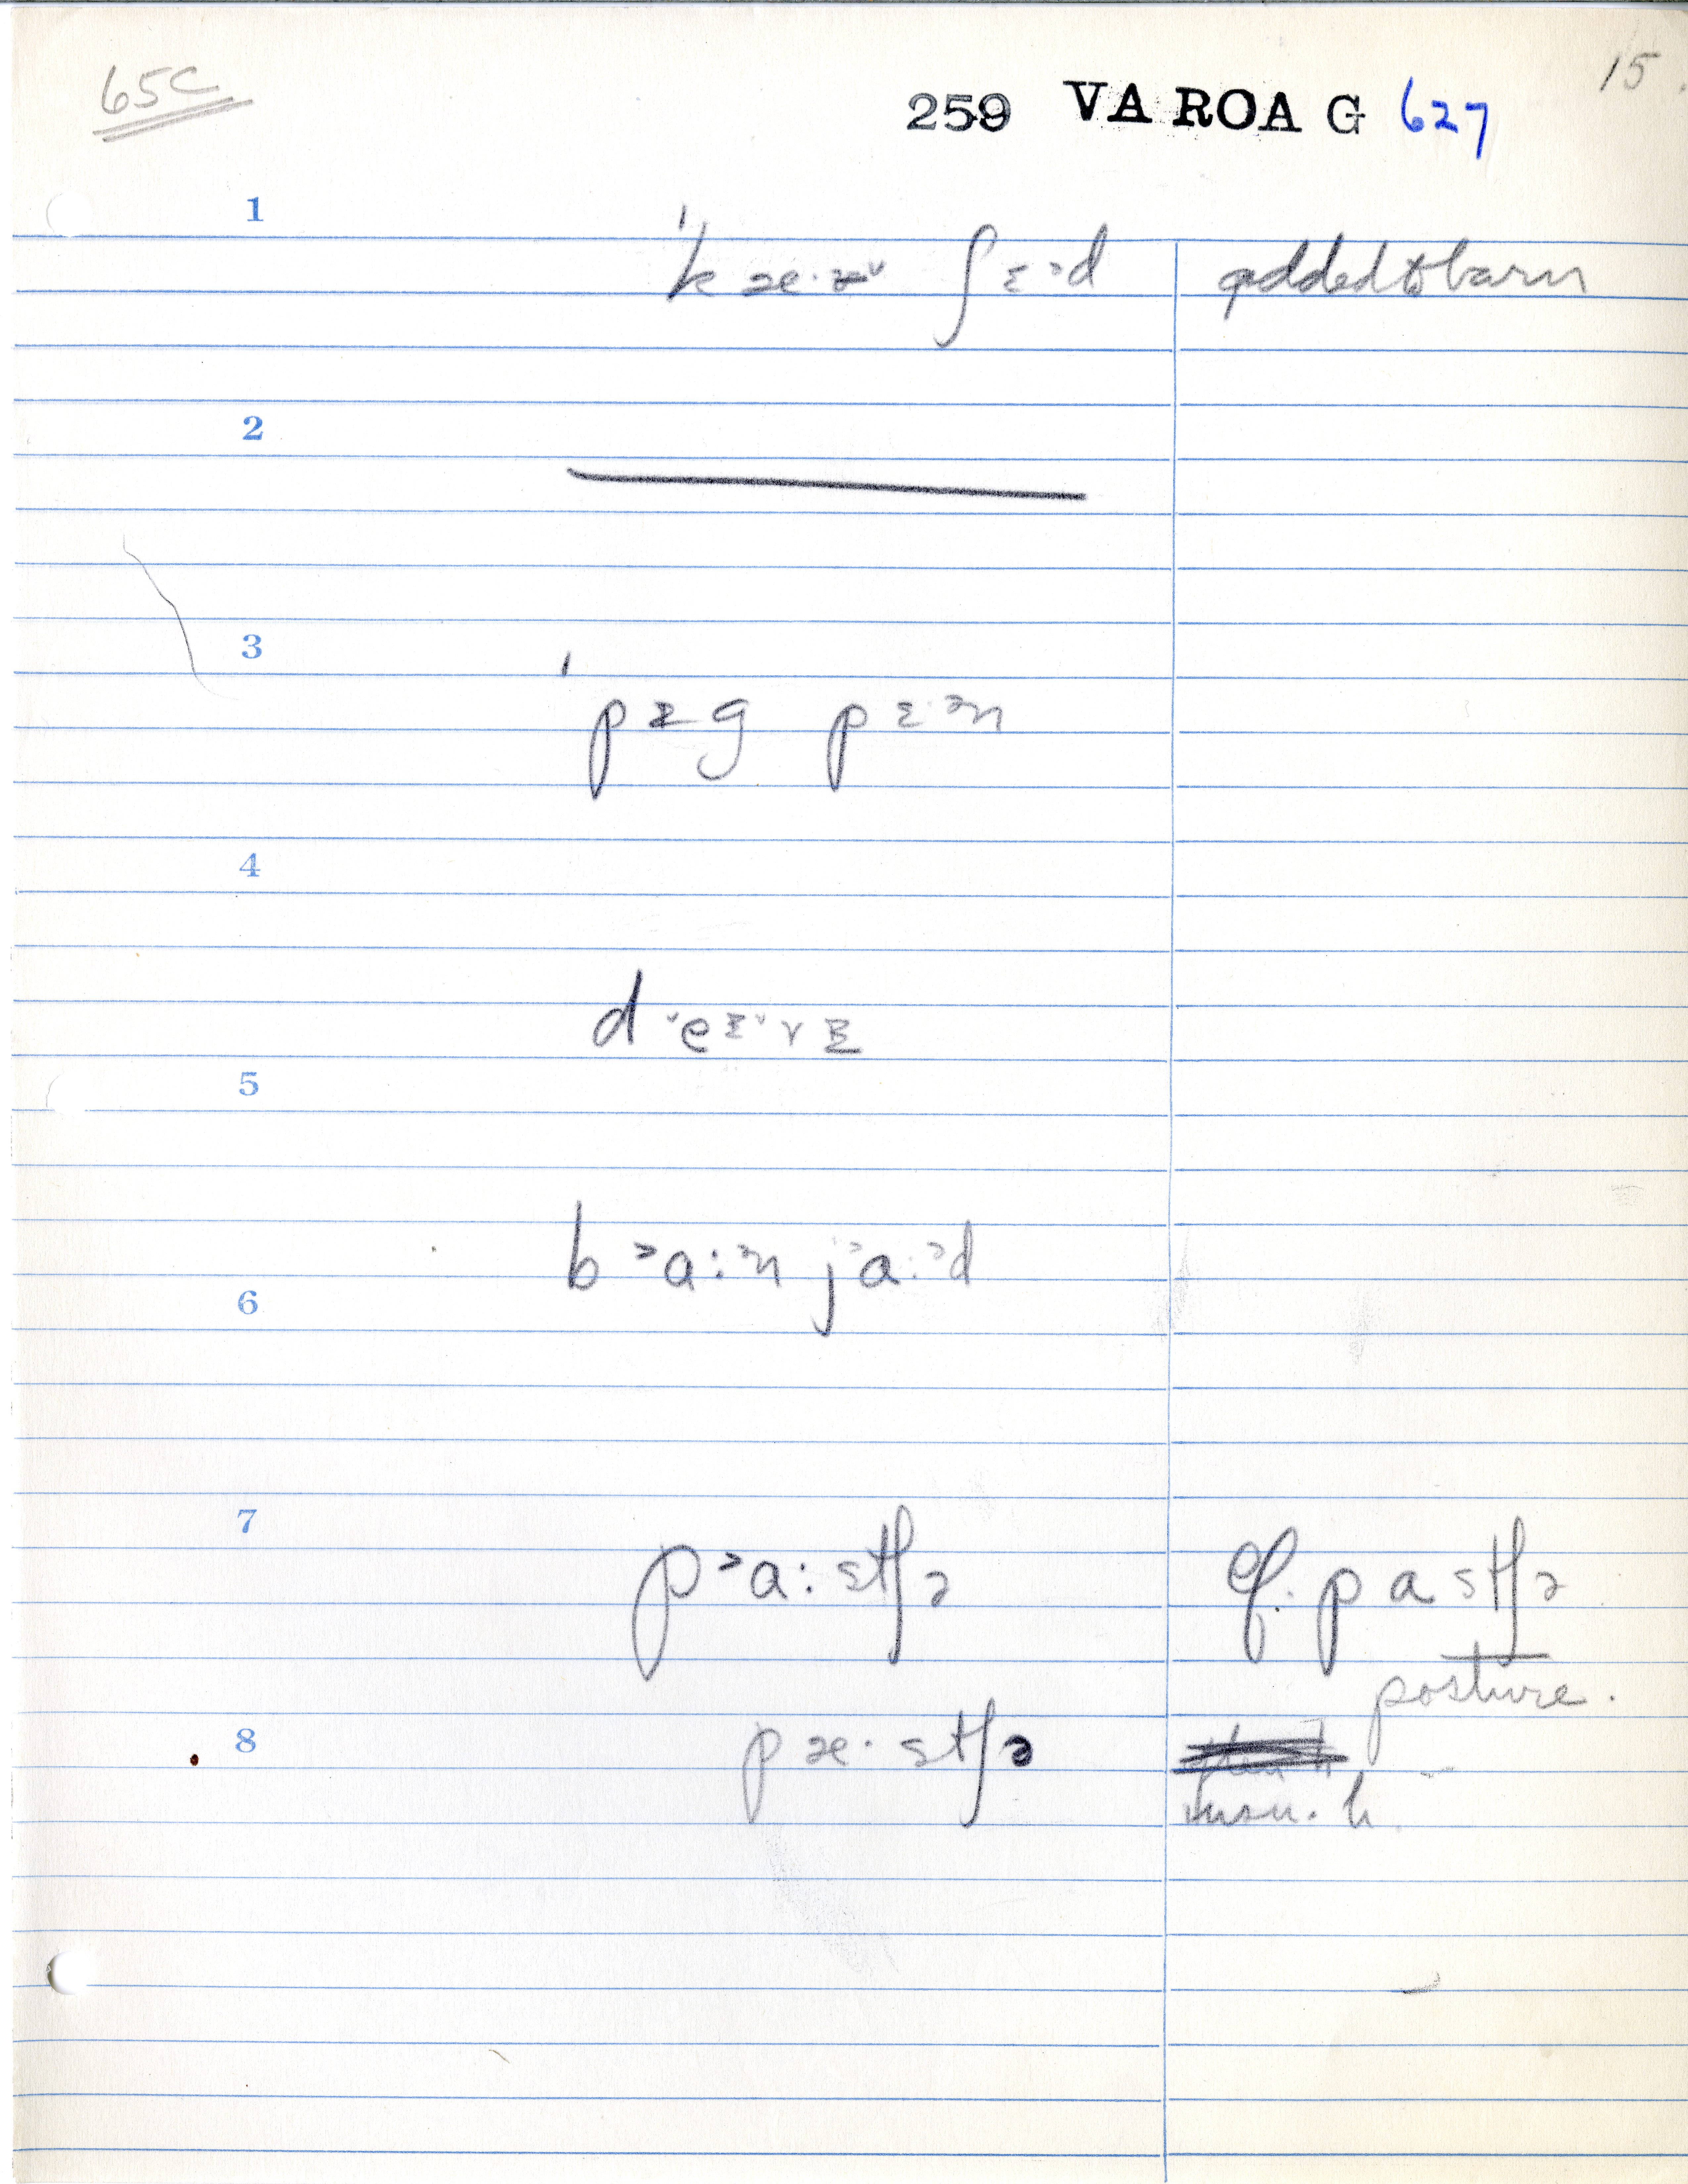 65C
15
259 VA ROA G 627
1
ˈkæ·ɚ˅ ʃɛ˃d added to barn
2
3
ˈpɪg pɛ·ᵊn
4
d˅eɪ˅rɪ
5
b˃a:ᵊn j˃a:ᵊd
6
7
p˃a:stʃə cf. pastʃə
posture.
8
pæ·stʃə